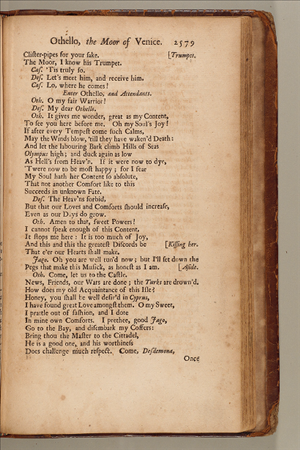 Othello, the Moor of Venice. 2579
Clister-pipes for your sake. [Trumpet.
The Moor, I know his Trumpet.
Cas. 'Tis truly so.
Des. Let's meet him, and receive him.
Cas. Lo, where he comes!
Enter Othello, and Attendants.
Oth. O my fair Warrior!
Des. My dear Othello.
Oth. It gives me wonder, great as my Content,
To see you here before me. Oh my Soul's Joy!
If after every Tempest come such Calms,
May the Winds blow, 'till they have waken'd Death:
And let the labouring Bark climb Hills of Seas
Olympus high; and duck again as low
As Hell's from Heav'n. If it were now to dye,
'Twere now to be most happy; for I fear
My Soul hath her Content so absolute,
That not another Comfort like to this
Succeeds in unknown Fate.
Des. The Heav'ns forbid.
But that our Loves and Comforts should increase,
Even as our Days do grow.
Oth. Amen to that, sweet Powers!
I cannot speak enough of this Content,
It stops me here: It is too much of Joy,
And this and this the greatest Discords be [Kissing her.
That e'er our Hearts shall make.
Jago. Oh you are well tun'd now; but I'll set down the
Pegs that make this Musick, as honest as I am. [Aside.
Oth. Come, let us to the Castle.
News, Friends, our Wars are done; the Turks are drown'd.
How does my old Acquaintance of this Isle?
Honey, you shall be well desir'd in Cyprus,
I have found great Love amongst them. O my Sweet,
I prattle out of fashion, and I dote
In mine own Comforts. I prethee, good Jago,
Go to the Bay, and disembark my Coffers:
Bring thou the Master to the Cittadel,
He is a good one, and his worthiness
Does challenge much respect. Come, Desdemona,
Once